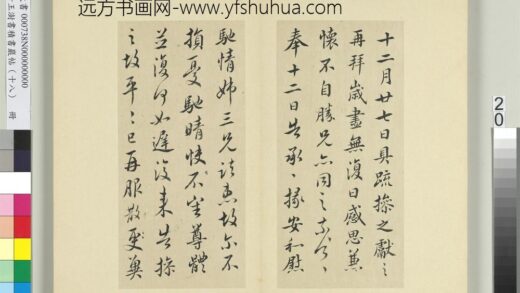 远方书画网-www.yfshuhua.com
十二月廿七日具疏操之獻之
再拜歲盡無復日感思兼
懷不自勝兄亦同之
奉十二日告承
安和慰
馳情姊三兄
故爾不
損憂馳
情
不
尊體
復何如遲復來告操
之故平平已再服散
冀
000738N00000000
王澍積書巖帖（十八）　冊
20